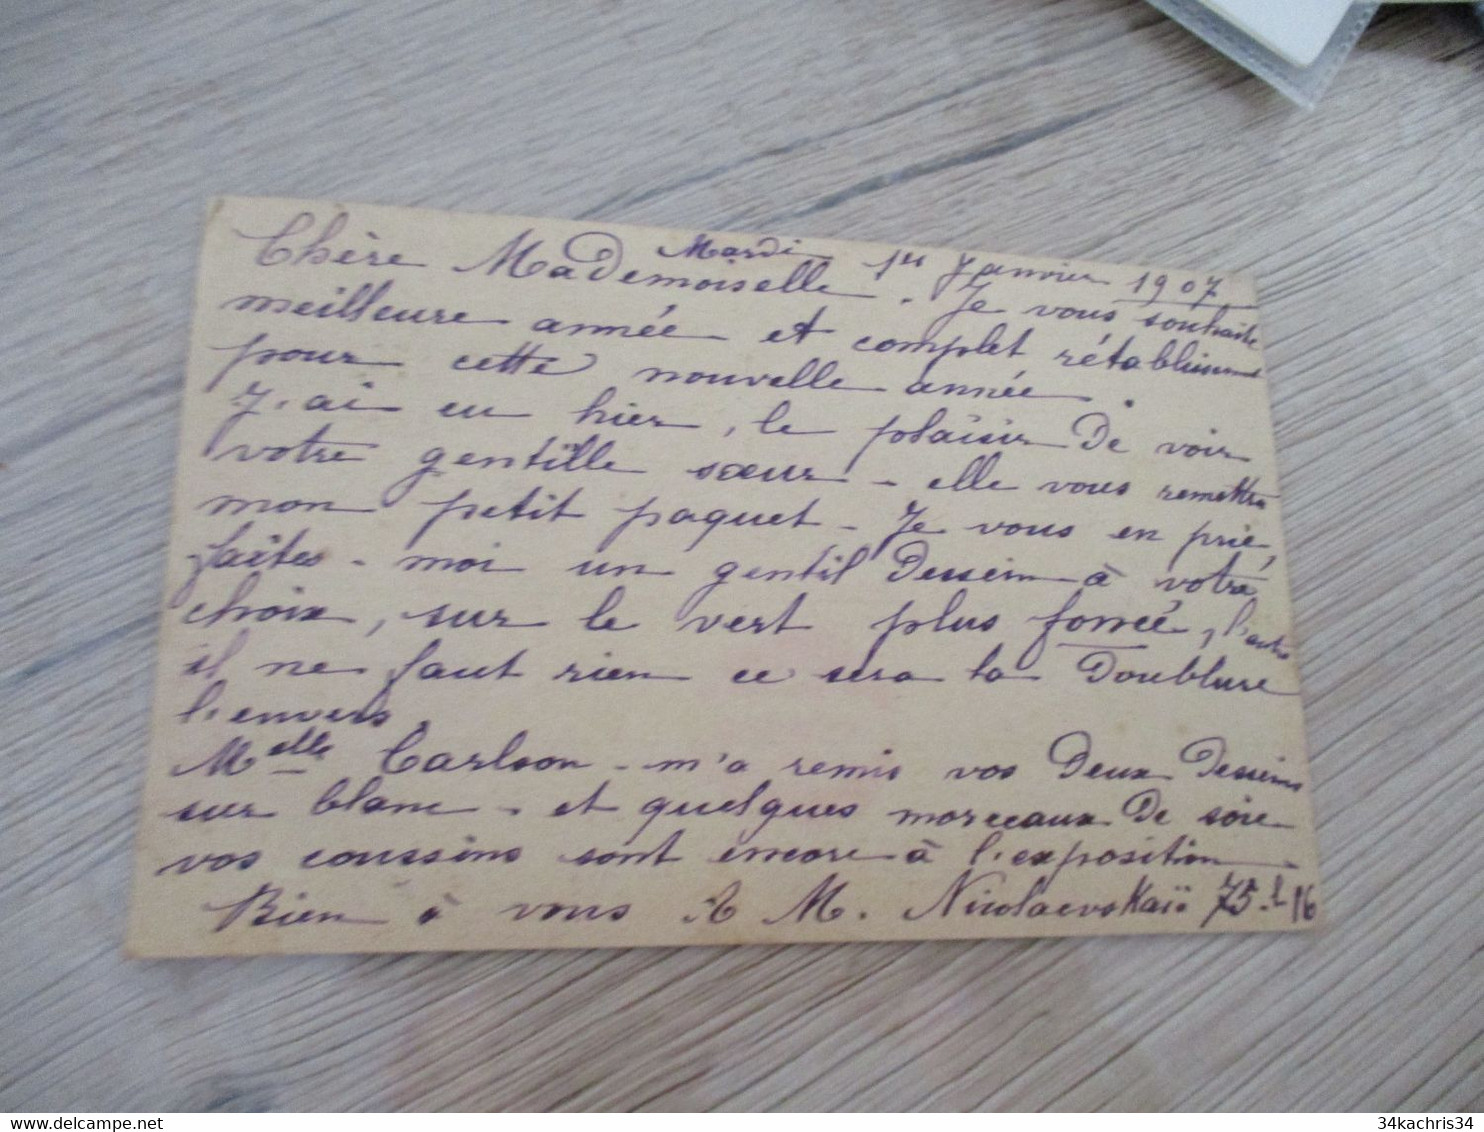 Mardi 1er Janvier 1907
Chère Mademoiselle. Je vous souhaite
meilleure année et complet rétablissement
pour cette nouvelle année.
J'ai eu hier, le plaisir de voir
votre gentille sœur - elle vous remettra
mon petit paquet - Je vous en prie,
faites-moi un gentil dessin à votre
choix, sur le vert plus foncé, l'autre
il ne faut rien ce sera la doublure
l'envers.
Melle Carlson - m'a remis vos deux dessins
sur blanc - et quelques morceaux de soie
vos coussins sont encore à l'exposition -
Bien à vous A M. Nicolaevskaïa
34kachris34
delcampe.net